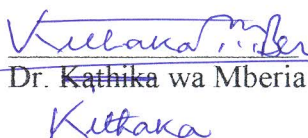 Kithaka wa Mberia
Dr. Kathika wa Mberia
Kithaka